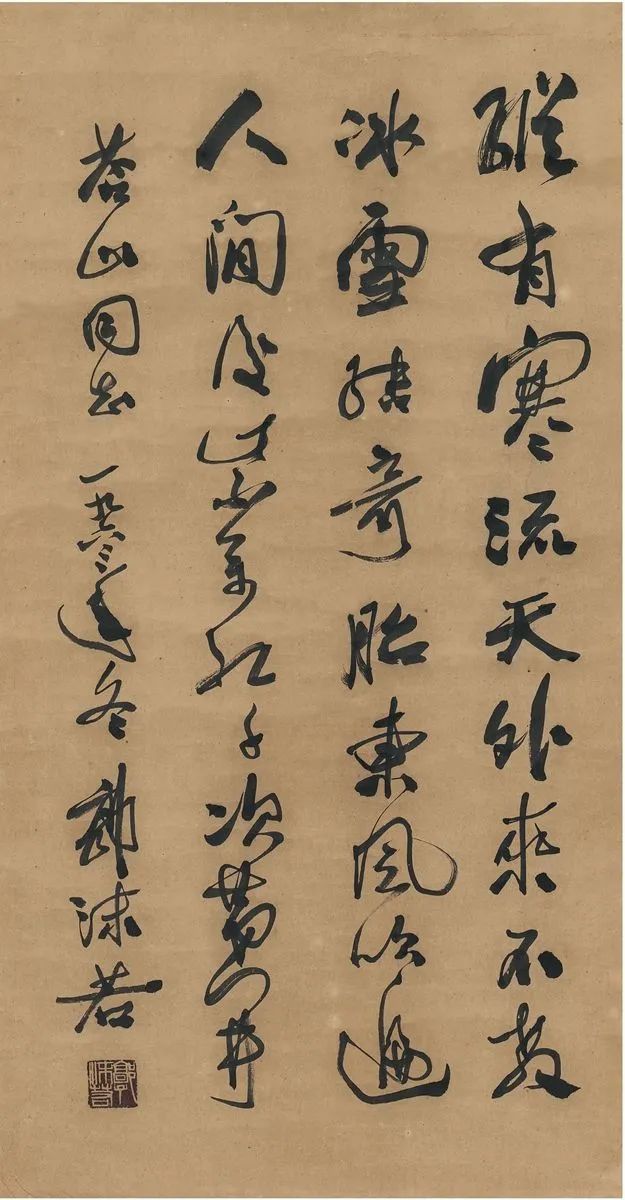 縱有寒流天外來不教
冰雪結奇胎東風吹遍
人間後紫萬紅千次第開
蒼山同志 一九六三年冬 郭沫若
郭沫若